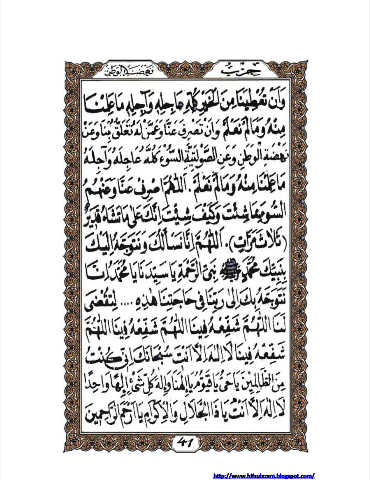 حزب نهضة الوطن
وَاَنْ تُعْطِيَنَا مِنَ الْخَيْرِ كُلِّهِ عَاجِلِهِ وَآجِلِهِ مَا عَلِمْنَا
مِنْهُ وَمَا لَمْ نَعْلَمْ وَاَنْ تَصْرِفَ عَنَّا وَعَمَّنْ لَهُ تَعَلُّقٌ بِنَا وَعَنْ
نَهْضَةِ الْوَطَنِ وَعَنِ الصَّوْلَتِيَّةِ السُّوْءَ كُلَّهُ عَاجِلَهُ وَآجِلَهُ
مَا عَلِمْنَا مِنْهُ وَمَا لَمْ نَعْلَمْ. اَللّٰهُمَّ اصْرِفْ عَنَّا وَعَنْهُمُ
السُّوْءَ بِمَا شِئْتَ وَكَيْفَ شِئْتَ اِنَّكَ عَلَى مَا تَشَاءُ قَدِيْرٌ
(ثَلَاثَ مَرَّاتٍ). اَللّٰهُمَّ اِنَّا نَسْأَلُكَ وَنَتَوَجَّهُ اِلَيْكَ
بِنَبِيِّكَ مُحَمَّدٍ ﷺ نَبِيِّ الرَّحْمَةِ يَا سَيِّدَنَا يَا مُحَمَّدُ اِنَّا
نَتَوَجَّهُ بِكَ اِلَى رَبِّنَا فِيْ حَاجَتِنَا هٰذِهِ .... لِتُقْضَى
لَنَا اَللّٰهُمَّ شَفِّعْهُ فِيْنَا اَللّٰهُمَّ شَفِّعْهُ فِيْنَا اَللّٰهُمَّ
شَفِّعْهُ فِيْنَا لَا اِلٰهَ اِلَّا اَنْتَ سُبْحَانَكَ اِنِّيْ كُنْتُ
مِنَ الظَّالِمِيْنَ يَا حَيُّ يَا قَيُّوْمُ يَا اِلٰهَنَا وَاِلٰهَ كُلِّ شَيْءٍ اِلٰهًا وَاحِدًا
لَا اِلٰهَ اِلَّا اَنْتَ يَا ذَا الْجَلَالِ وَالْاِكْرَامِ يَا اَرْحَمَ الرَّاحِمِيْنَ
41
http://www.hifsulzam.blogspot.com/